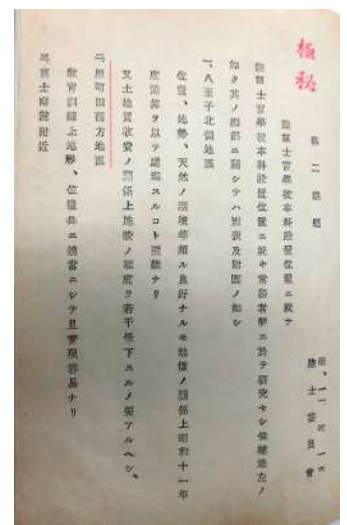 極秘
第二課題
陸軍士官學校本科設置位置ニ就テ
陸士委員會
陸軍士官學校本科設置位置ニ就キ常務者間ニ於テ研究セシ候補地左ノ
如シ其ノ細部ニ關シテハ別表及附圖ノ如シ
一、八王子北側地區
位置、地勢、天然ノ環境等頗ル良好ナルモ地價ノ關係上昭和十一年
度豫算ヲ以テ處理スルコト困難ナリ
又土地買收費ノ關係上施設ノ程度ヲ若干低下スルノ要アルヘシ、
二、原町田西方地區
教育訓練上地形、位置共ニ適當ニシテ且實現容易ナリ
三、富士南麓附近